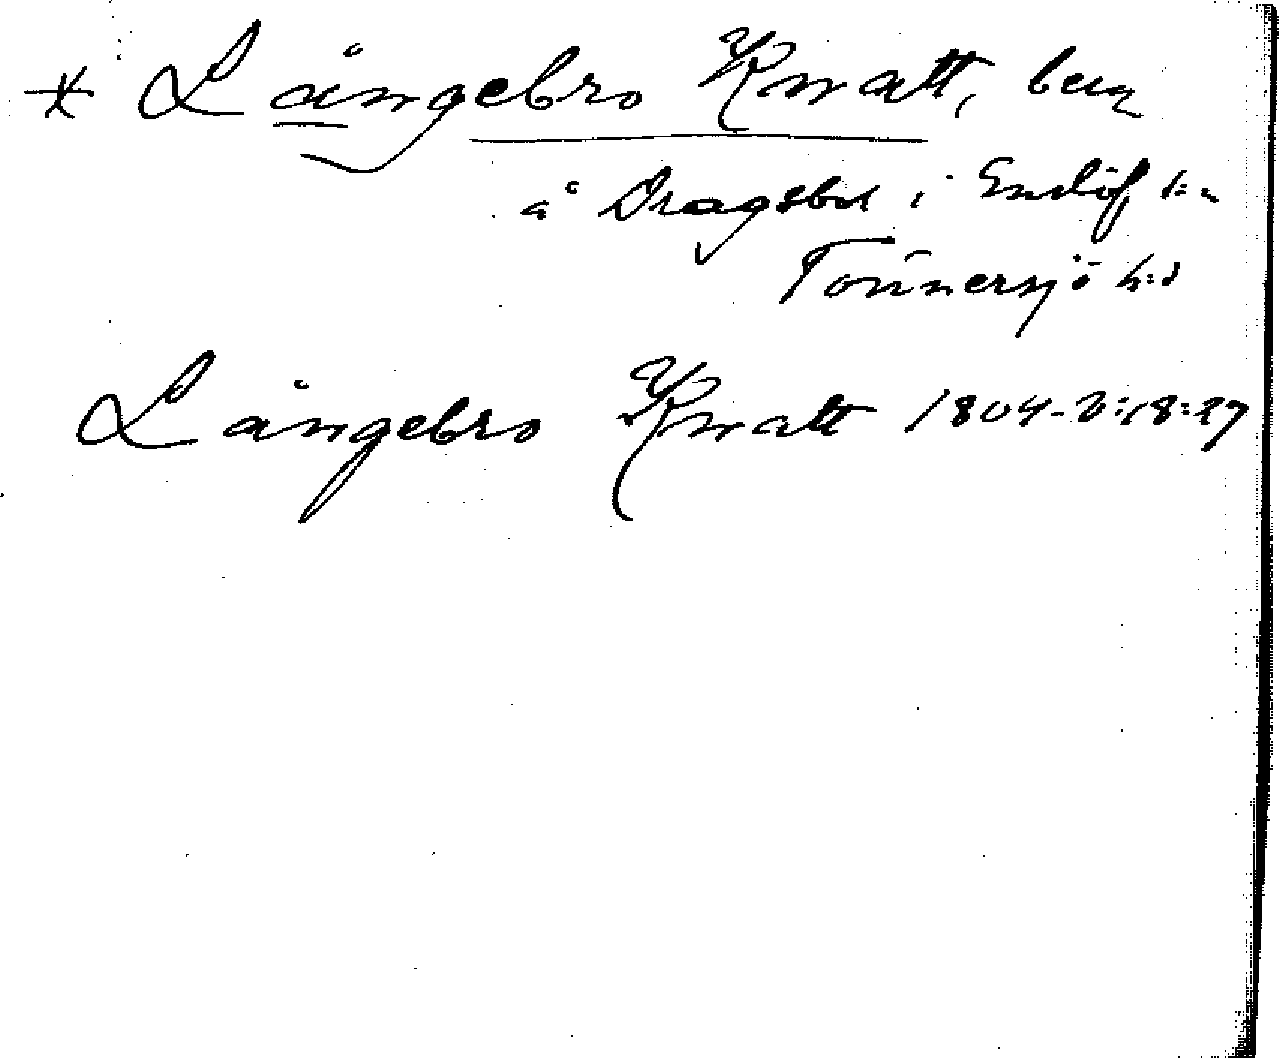 * Långebro Knatt, berg
å Dragsbol i Enslöf s:n
Tönnersjö h:d
Långebro Knatt 1804-2:18:27